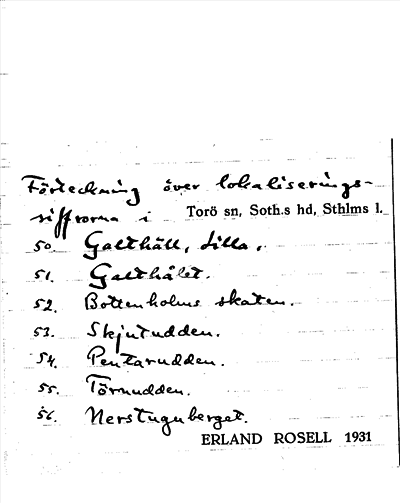 Förteckning över lokaliserings-
siffrorna i Torö sn, Soth.s hd, Sthlms l.
50. Galthäll, Lilla.
51. Galthålet.
52. Bottenholms skaten.
53. Skjutudden.
54. Pentarudden.
55. Törnudden.
56. Nerstuguberget.
ERLAND ROSELL 1931